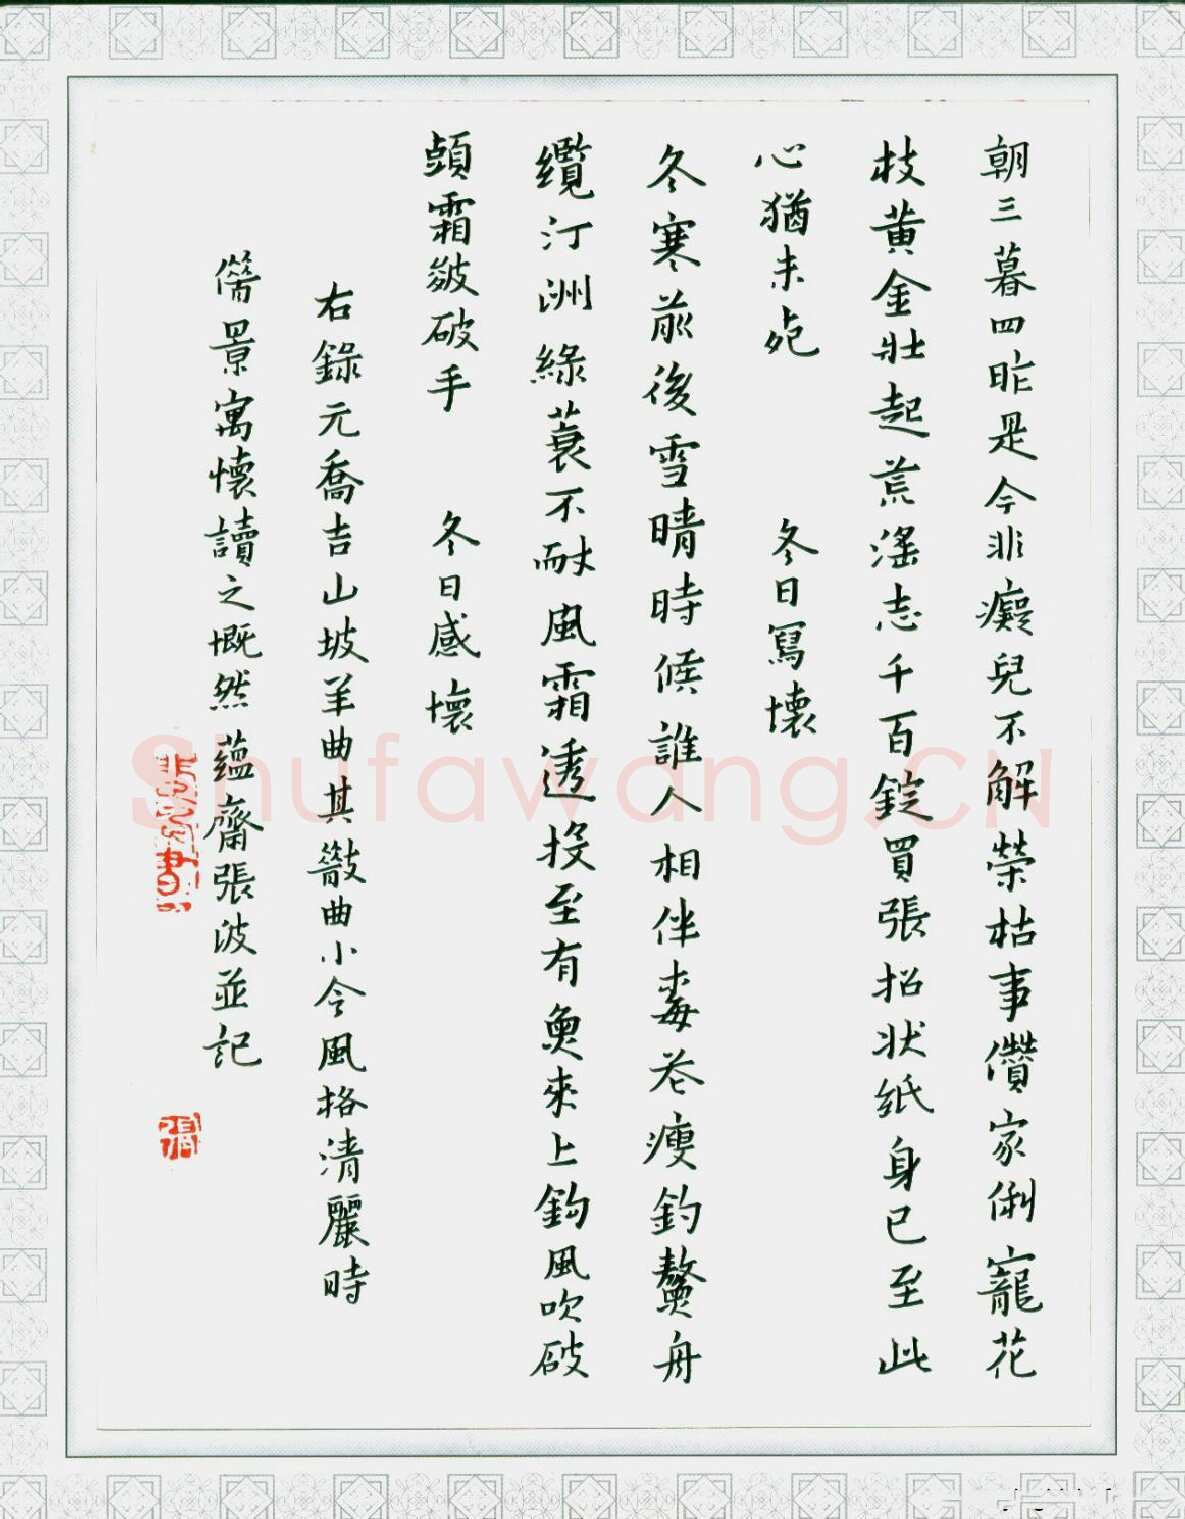 朝三暮四昨是今非癡兒不解榮枯事儹家俬寵花
枝黃金壯起荒滛志千百錠買張招狀紙身已至此
心猶未死 冬日寫懷
冬寒前後雪晴時候誰人相伴梅花瘦釣鰲舟
纜汀洲綠蓑不耐風霜透投至有魚來上鈎風吹破
頭霜皴破手 冬日感懷
右錄元喬吉山坡羊曲其散曲小令風格清麗時
借景寓懷讀之慨然蘊齋張波並記
Shufawang.CN